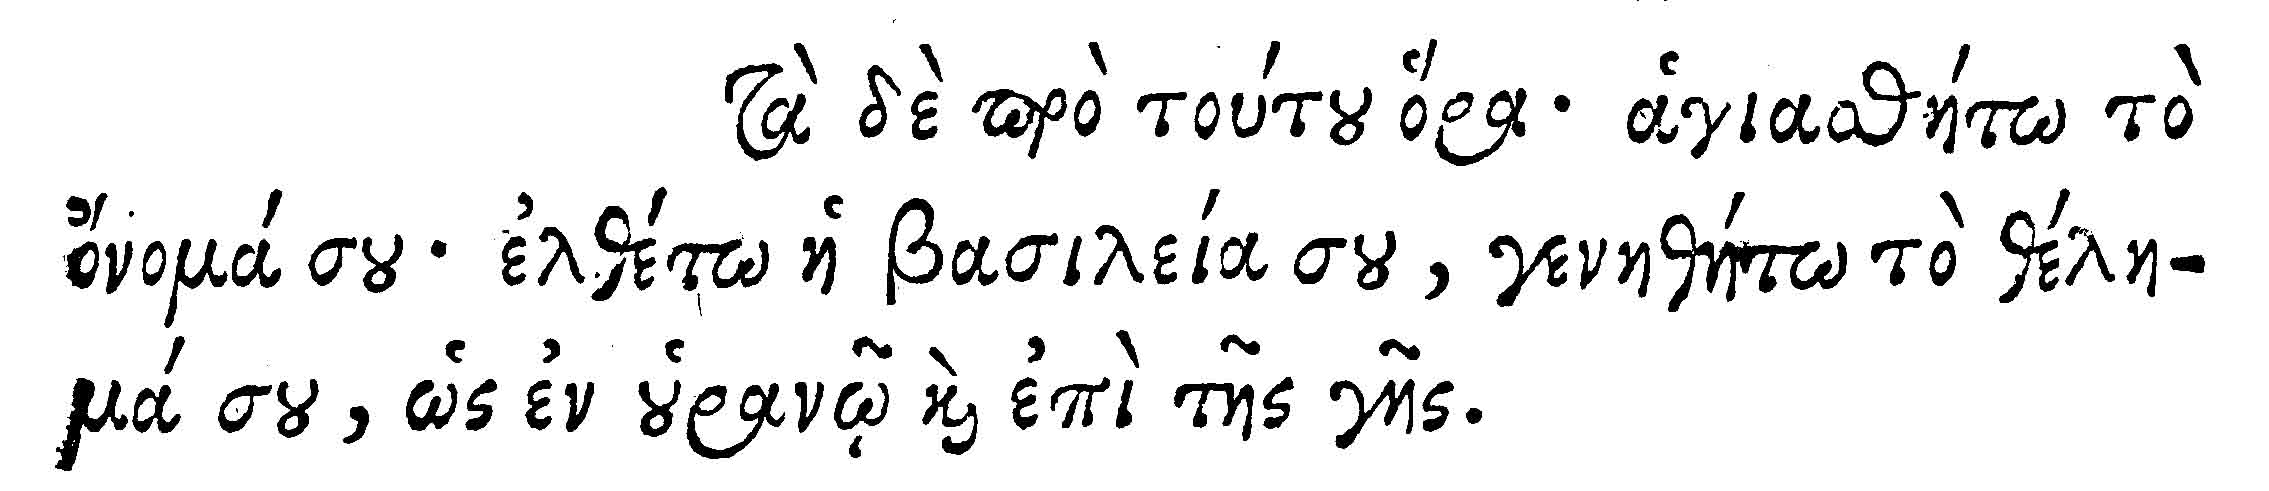 Τὰ δὲ πρὸ τούτου ὅρα· ἁγιασθήτω τὸ
ὄνομά σου· ἐλθέτω ἡ βασιλεία σου, γενηθήτω τὸ θέλη-
μά σου, ὡς ἐν οὐρανῷ καὶ ἐπὶ τῆς γῆς.